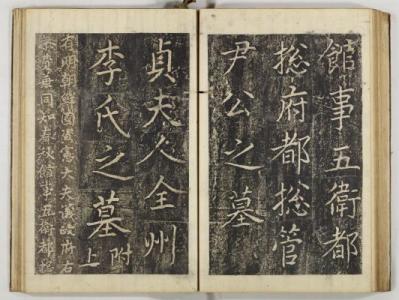 館事五衛都
揔府都揔管
尹公之墓
貞夫人全州
李氏之墓
附
上
有明朝鮮國資憲大夫議政府右
參贊兼同知春秋館事五衛都揔